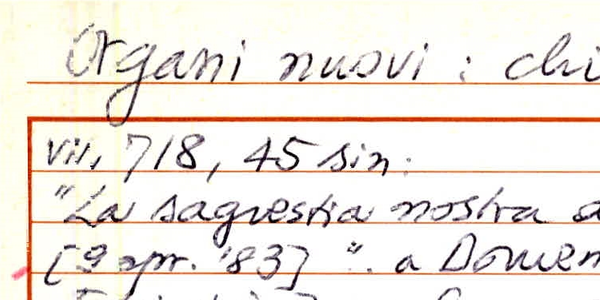 Organi nuovi : chi
VII, 718, 45 sin.
"La sagrestia nostra a
[9 apr. '83] ". a Domen